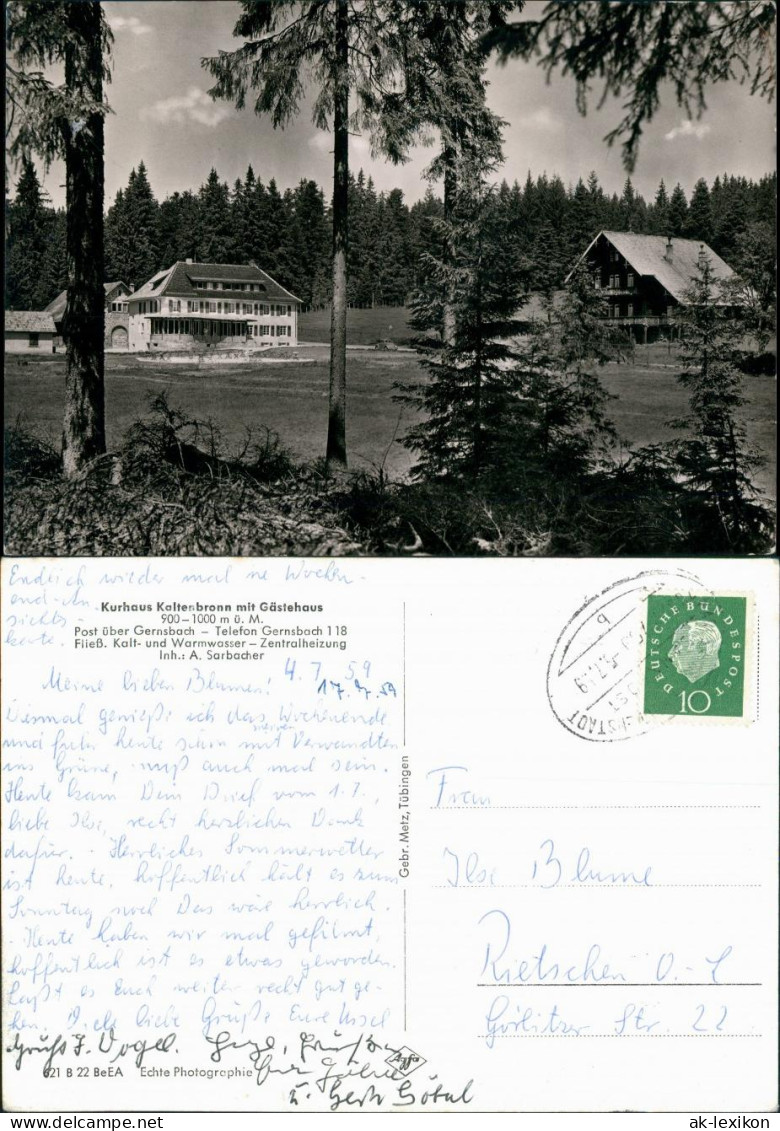 Endlich wieder mal ne Wochen-
end-An-
sichts-
karte.
Kurhaus Kaltenbronn mit Gästehaus
900–1000 m ü. M.
Post über Gernsbach – Telefon Gernsbach 118
Fließ. Kalt- und Warmwasser – Zentralheizung
Inh.: A. Sarbacher
4.7.59
17.7.59
Meine lieben Blumen!
Diesmal genieße ich das Wochenende
und fuhr heute schon mit Verwandten
ins Grüne, muß auch mal sein.
Heute kam Dein Brief vom 1.7.,
liebe Ilse, recht herzlichen Dank
dafür. - Herrliches Sommerwetter
ist heute, hoffentlich hält es zum
Sonntag noch. Das wär herrlich.
- Heute haben wir mal gefilmt,
hoffentlich ist es etwas geworden.
Laßt es Euch weiter recht gut ge-
hen. Viele liebe Grüße Eure Ursel
Gruß F. Vogel. Herzl.
u. Gert Göbel
621 B 22 BeEA Echte Photographie
Agfa
Gebr. Metz, Tübingen
DEUTSCHE BUNDESPOST
10
Frau
Ilse Blume
Rietschen O.-L
Görlitzer Str. 22
ak-lexikon